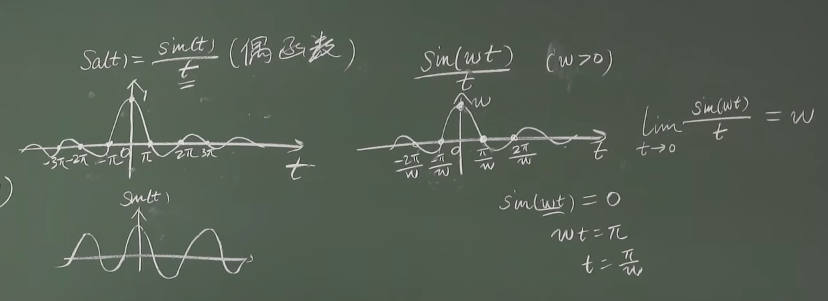 Sa(t) = sin(t)/t (偶函数)
1
-3π -2π -π 0 π 2π 3π t
Sin(t)
sin(wt)/t (w>0)
w
-2π/w -π/w 0 π/w 2π/w t
lim t→0 sin(wt)/t = w
sin(wt) = 0
wt = π
t = π/w
)